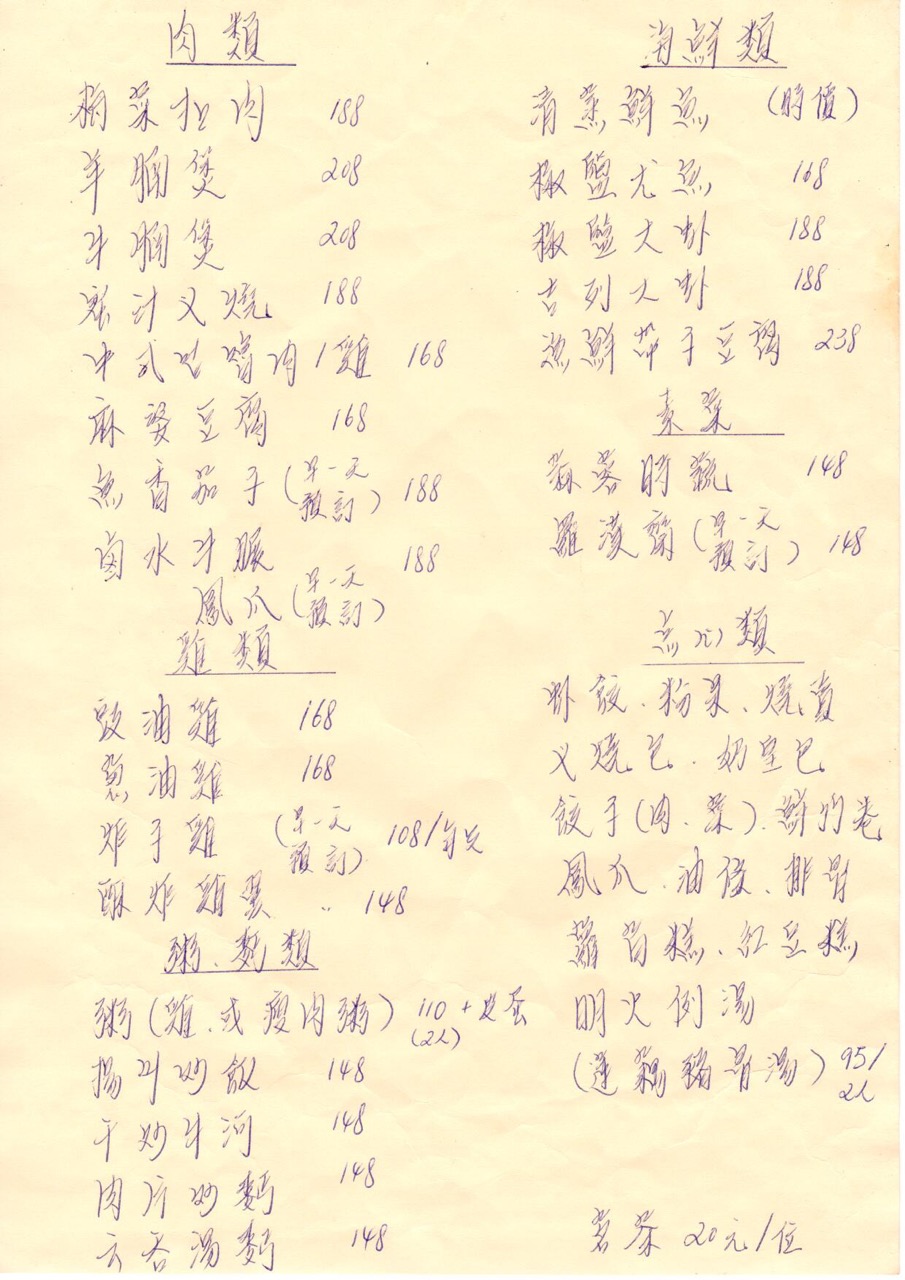 肉類
梅菜扣肉 188
羊腩煲 208
牛腩煲 208
蜜汁叉燒 188
中式咕嚕肉/雞 168
麻婆豆腐 168
魚香茄子(早一天預訂) 188
鹵水牛𦟌 188
鳳爪(早一天預訂)
雞類
豉油雞 168
蔥油雞 168
炸子雞 (早一天預訂) 108/每只
酥炸雞翼 〃 148
粥、麵類
粥(雞、或瘦肉粥) 110 + 皮蛋
(2人)
揚州炒飯 148
干炒牛河 148
肉片炒麵 148
云吞湯麵 148
海鮮類
清蒸鮮魚 (時價)
椒鹽尤魚 168
椒鹽大虾 188
吉列大虾 188
海鮮茄子豆腐 238
素菜
蒜蓉時蔬 148
羅漢齋(早一天預訂) 148
点心類
虾餃、粉果、燒賣
叉燒包、奶皇包
餃子(肉、菜)、鮮竹卷
鳳爪、油條、排骨
蘿蔔糕、紅豆糕
明火例湯
(蓮藕豬骨湯) 95/2人
茗茶 20元/位